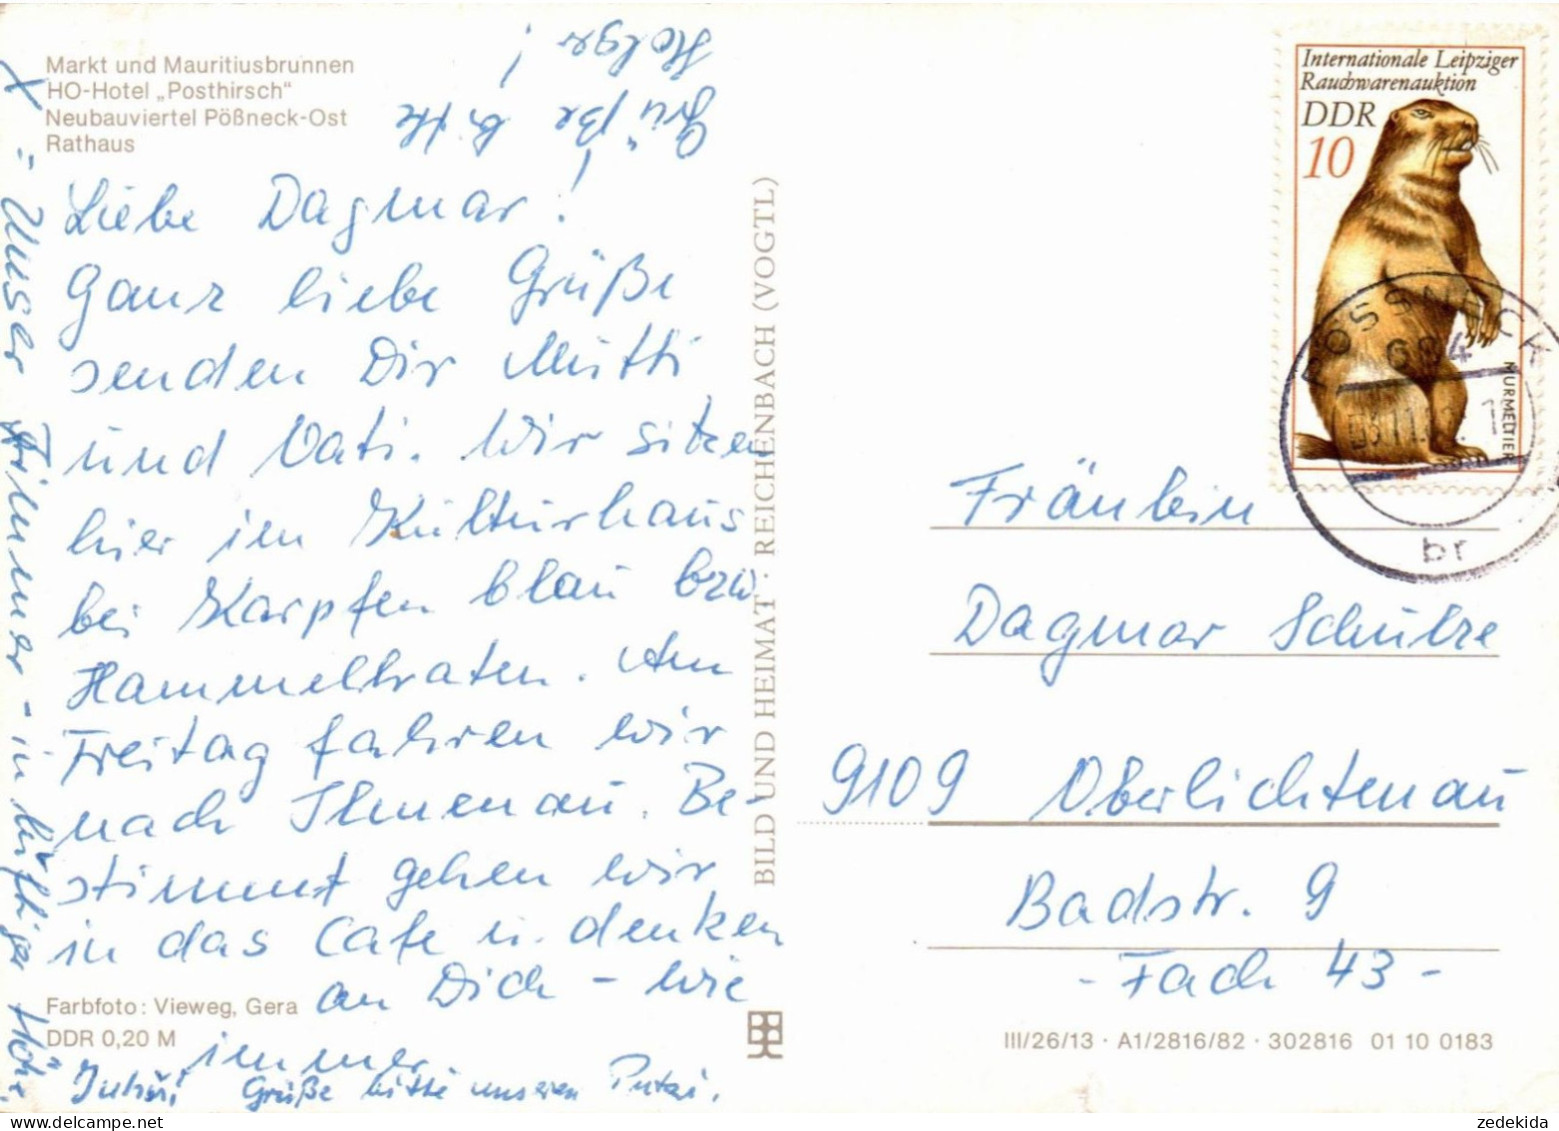 Markt und Mauritiusbrunnen
HO-Hotel „Posthirsch“
Neubauviertel Pößneck-Ost
Rathaus
Grüße bitte
Holger!
Liebe Dagmar!
Ganz liebe Grüße
senden Dir Mutti
und Vati. Wir sitzen
hier im Kulturhaus
bei Karpfen blau bzw
Hammelbraten. Am
Freitag fahren wir
nach Ilmenau. Be-
stimmt gehen wir
in das Cafe u. denken
an Dich - wie
immer
Grüße bitte unseren Putzi.
X "Unser Zimmer - in luftiger Höh"
Farbfoto: Vieweg, Gera
DDR 0,20 M
BILD UND HEIMAT · REICHENBACH (VOGTL)
Internationale Leipziger
Rauchwarenauktion
DDR
10
MURMELTIER
PÖSSNECK
684
br
Fräulein
Dagmar Schulze
9109 Oberlichtenau
Badstr. 9
- Fach 43 -
III/26/13 · A1/2816/82 · 302816 01 10 0183
zedekida